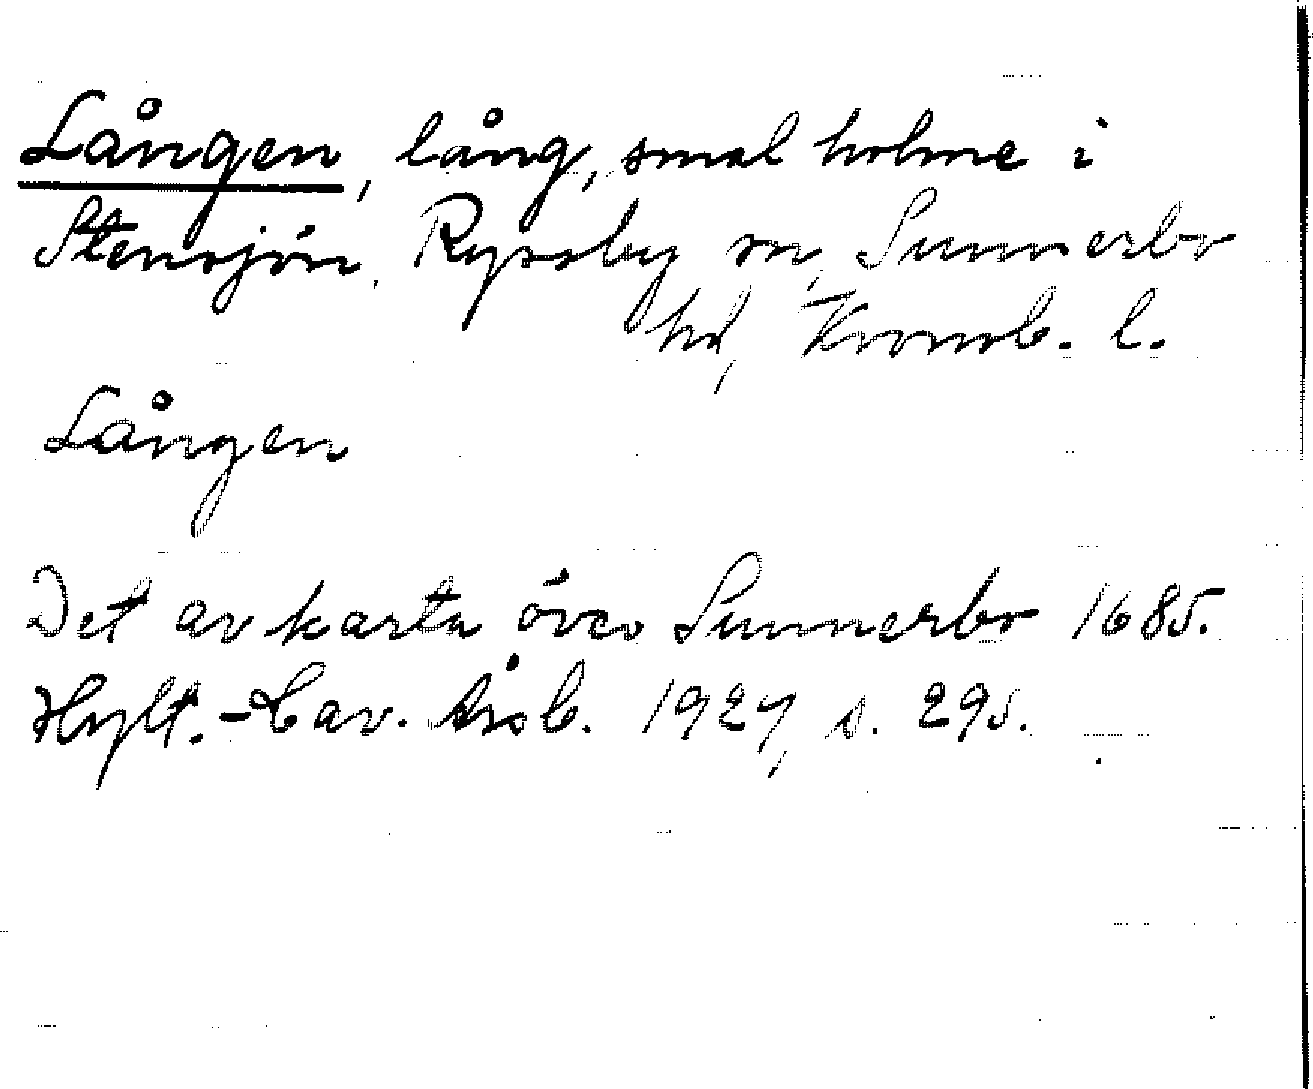 Lången, lång, smal holme i
Stensjön, Ryssby sn, Sunnerbo
hd, Kronob. l.
Lången
Det av karta över Sunnerbo 1685.
Hylt.-Cav. Årsb. 1927, s. 295.